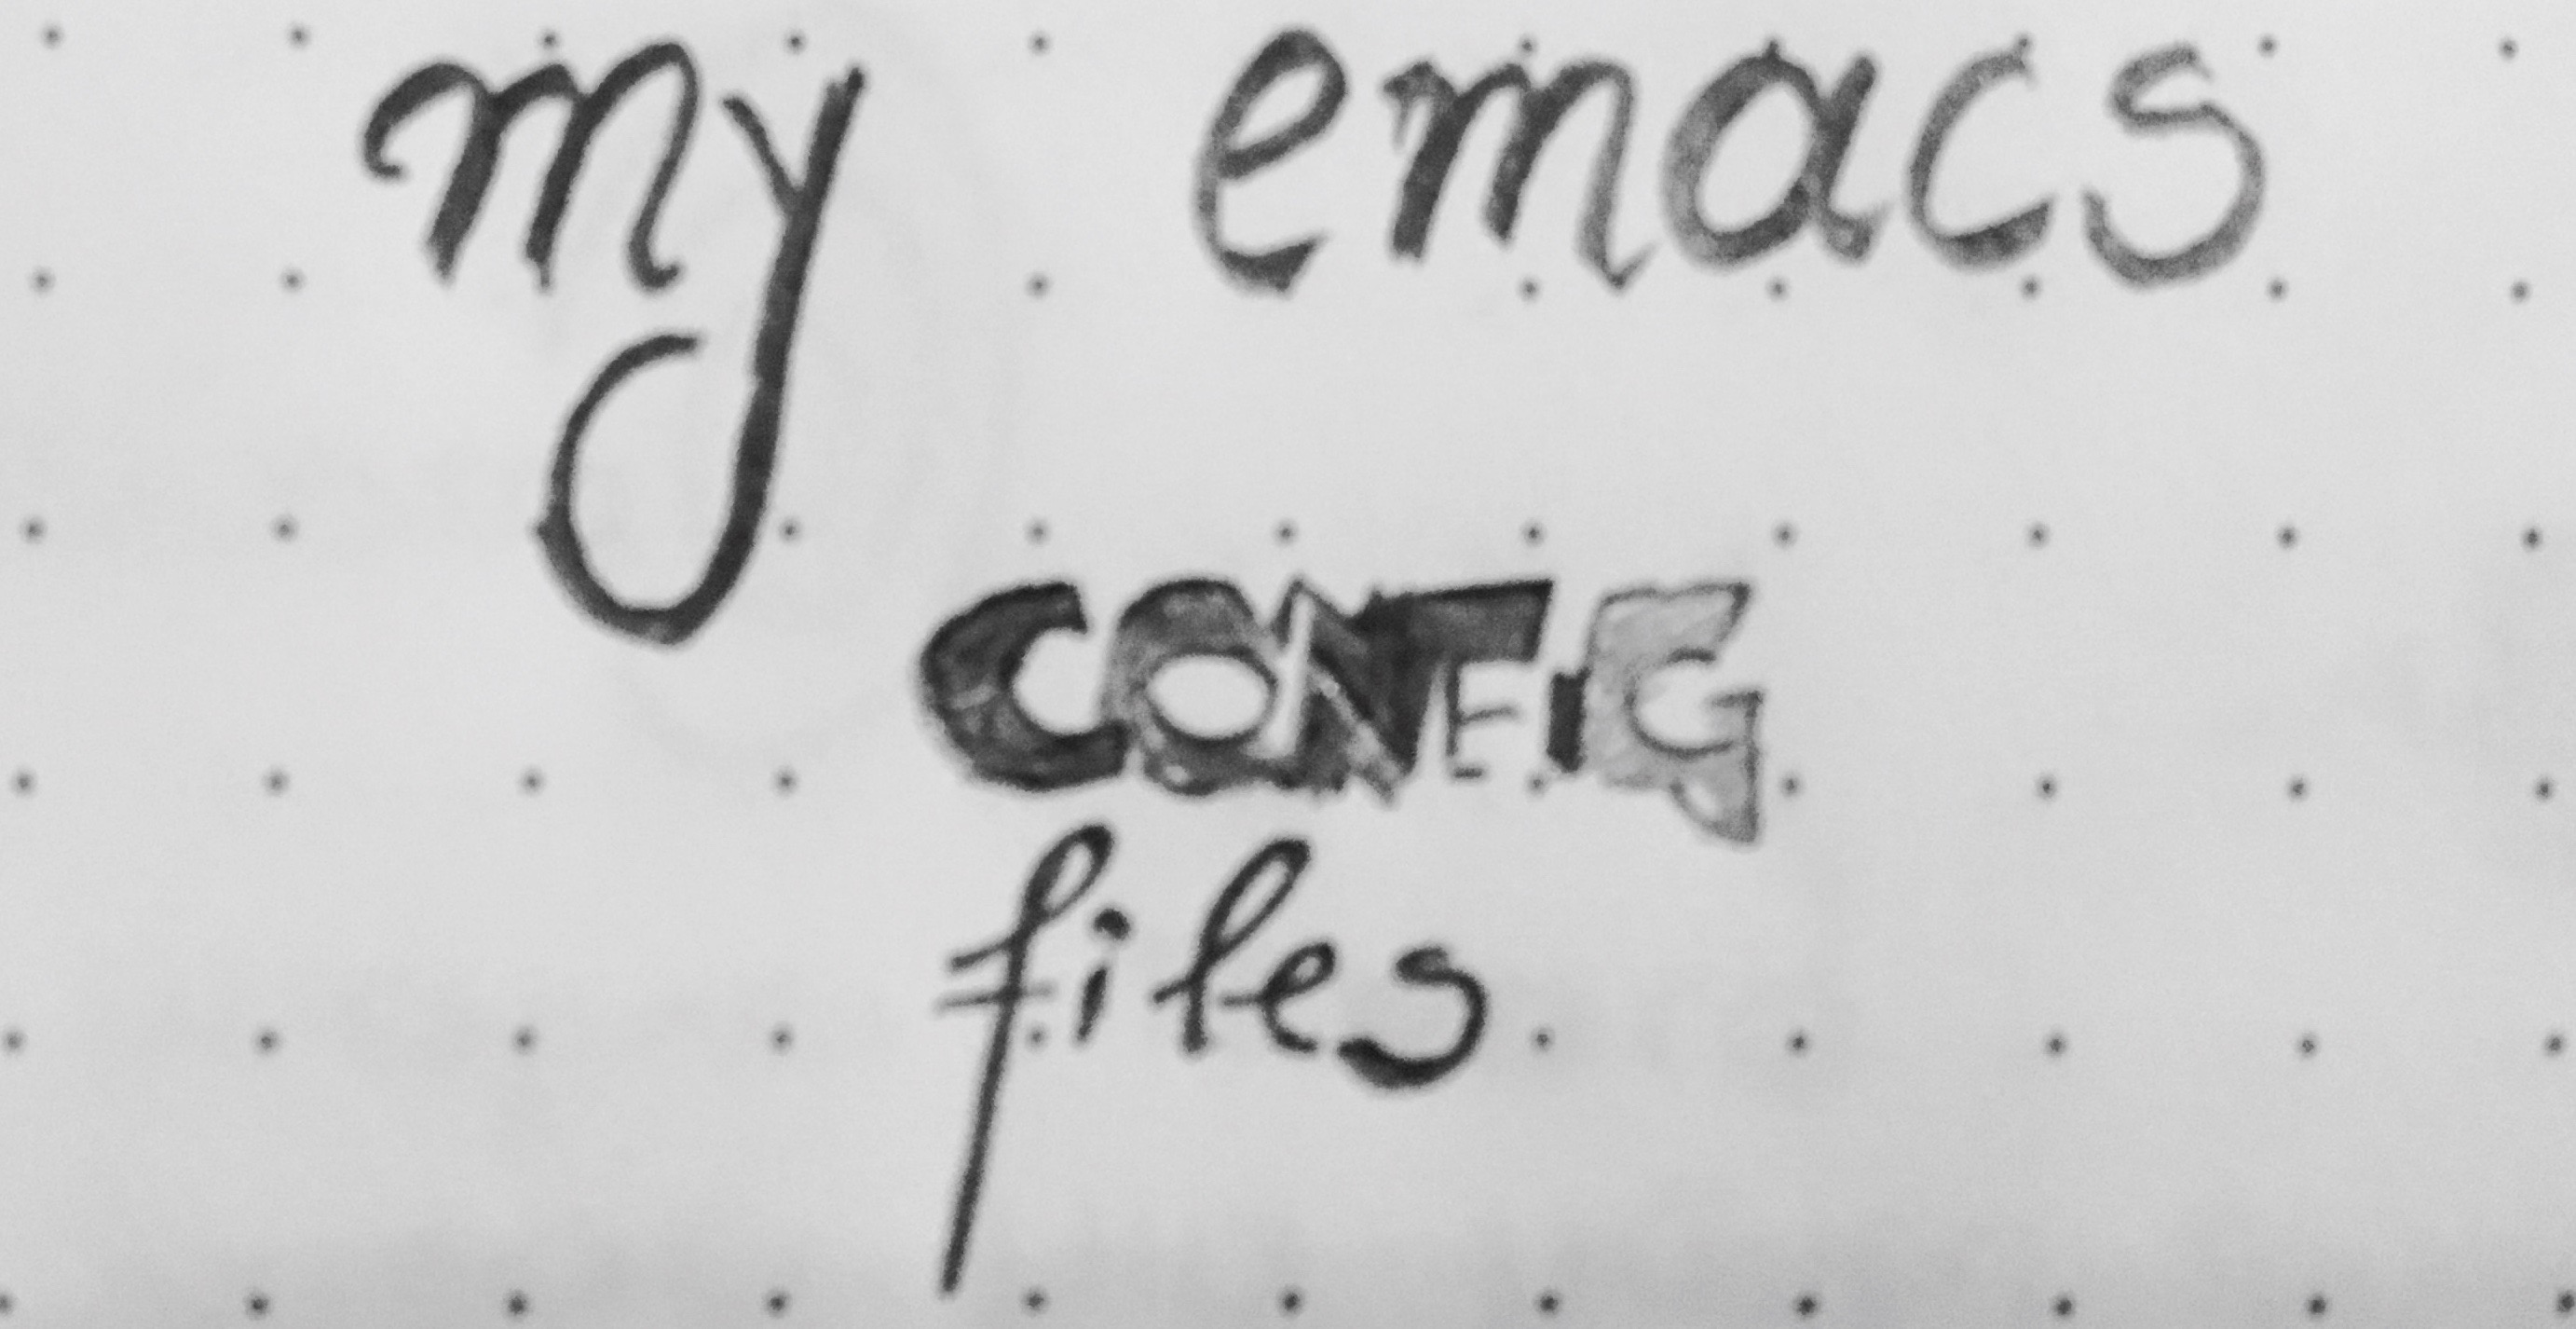 my emacs
CONFIG
files